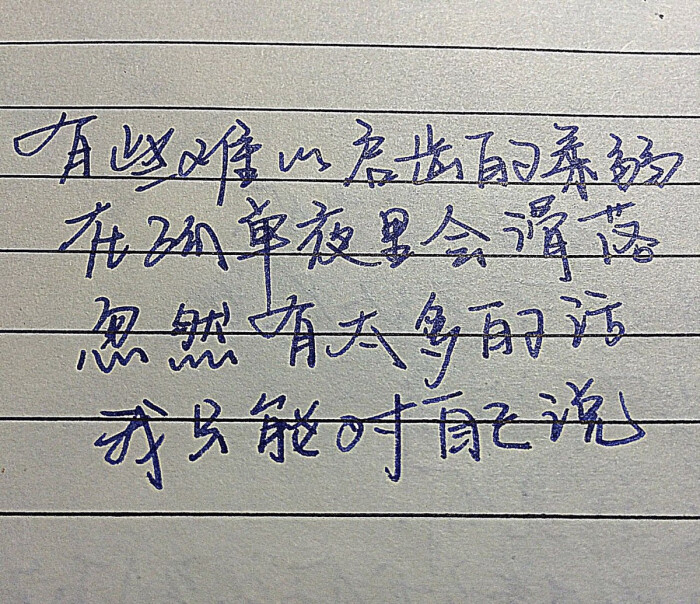 有些难以启齿的柔弱
在孤单夜里会滑落
忽然有太多的话
我只能对自己说